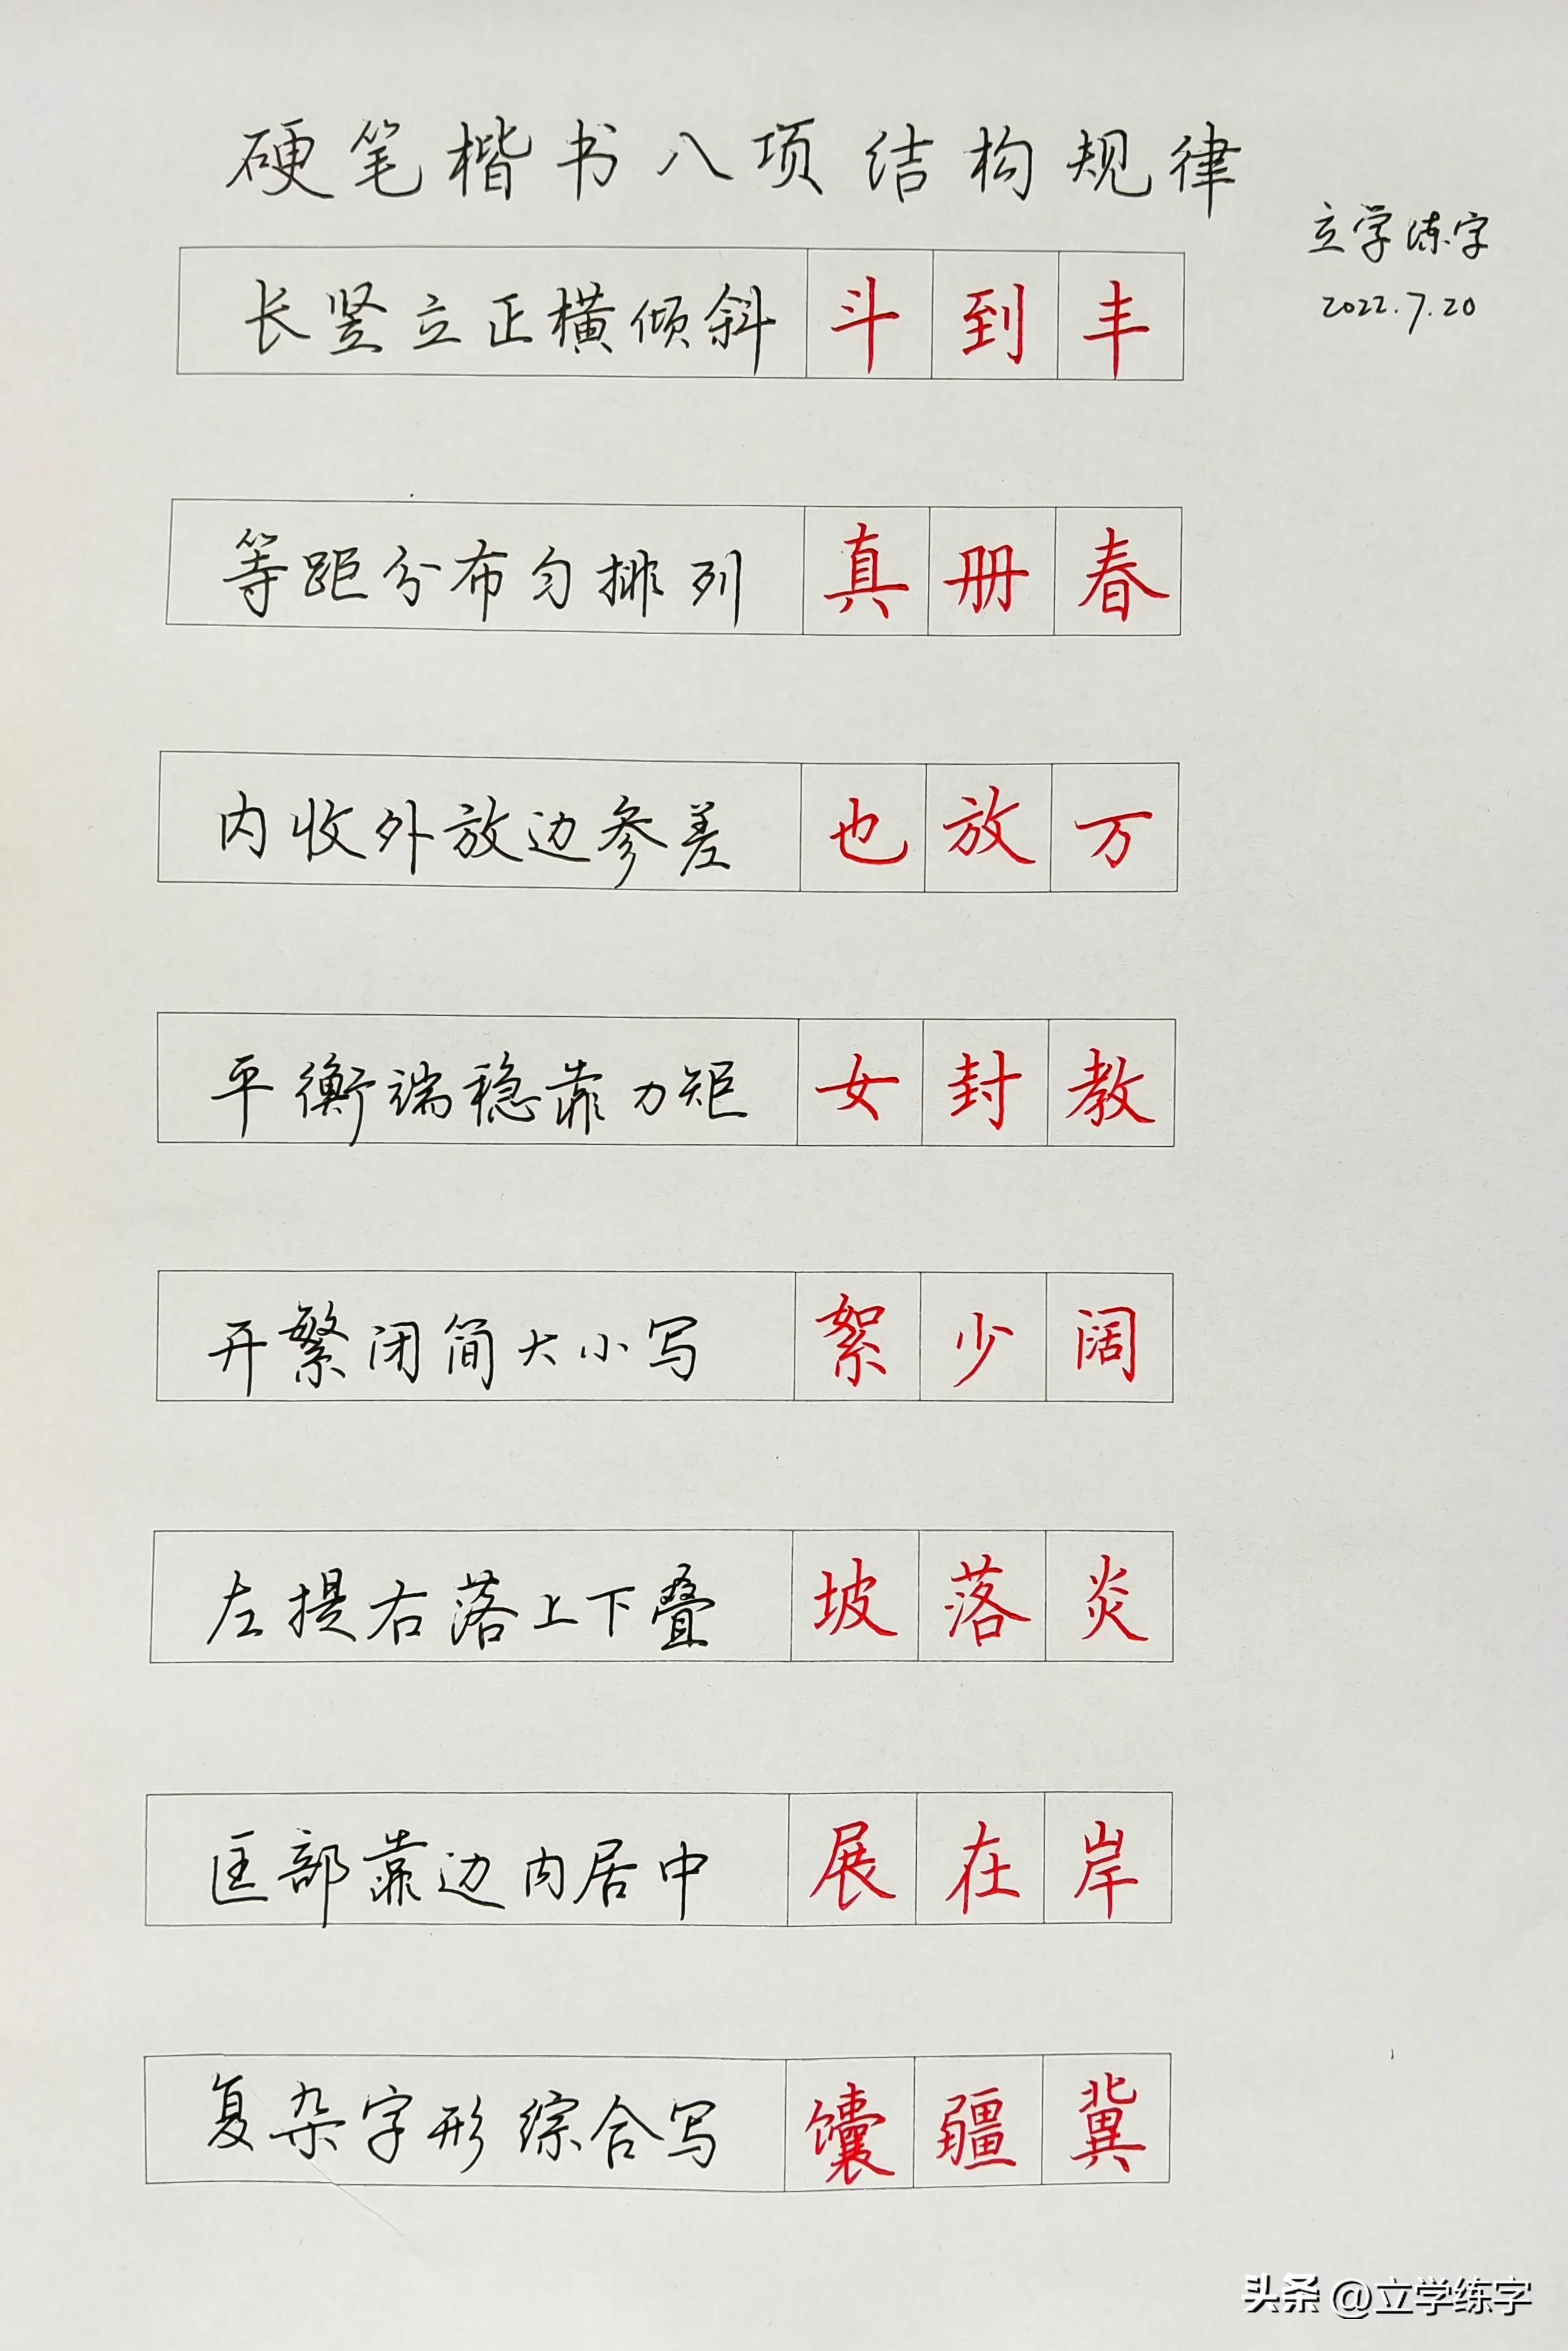 硬笔楷书八项结构规律
立学练字
2022.7.20
长竖立正横倾斜 斗 到 丰
等距分布匀排列 真 册 春
内收外放边参差 也 放 万
平衡端稳靠力矩 女 封 教
开繁闭简大小写 絮 少 阔
左提右落上下叠 坡 落 炎
匡部靠边内居中 展 在 岸
复杂字形综合写 馕 疆 冀
头条 @立学练字